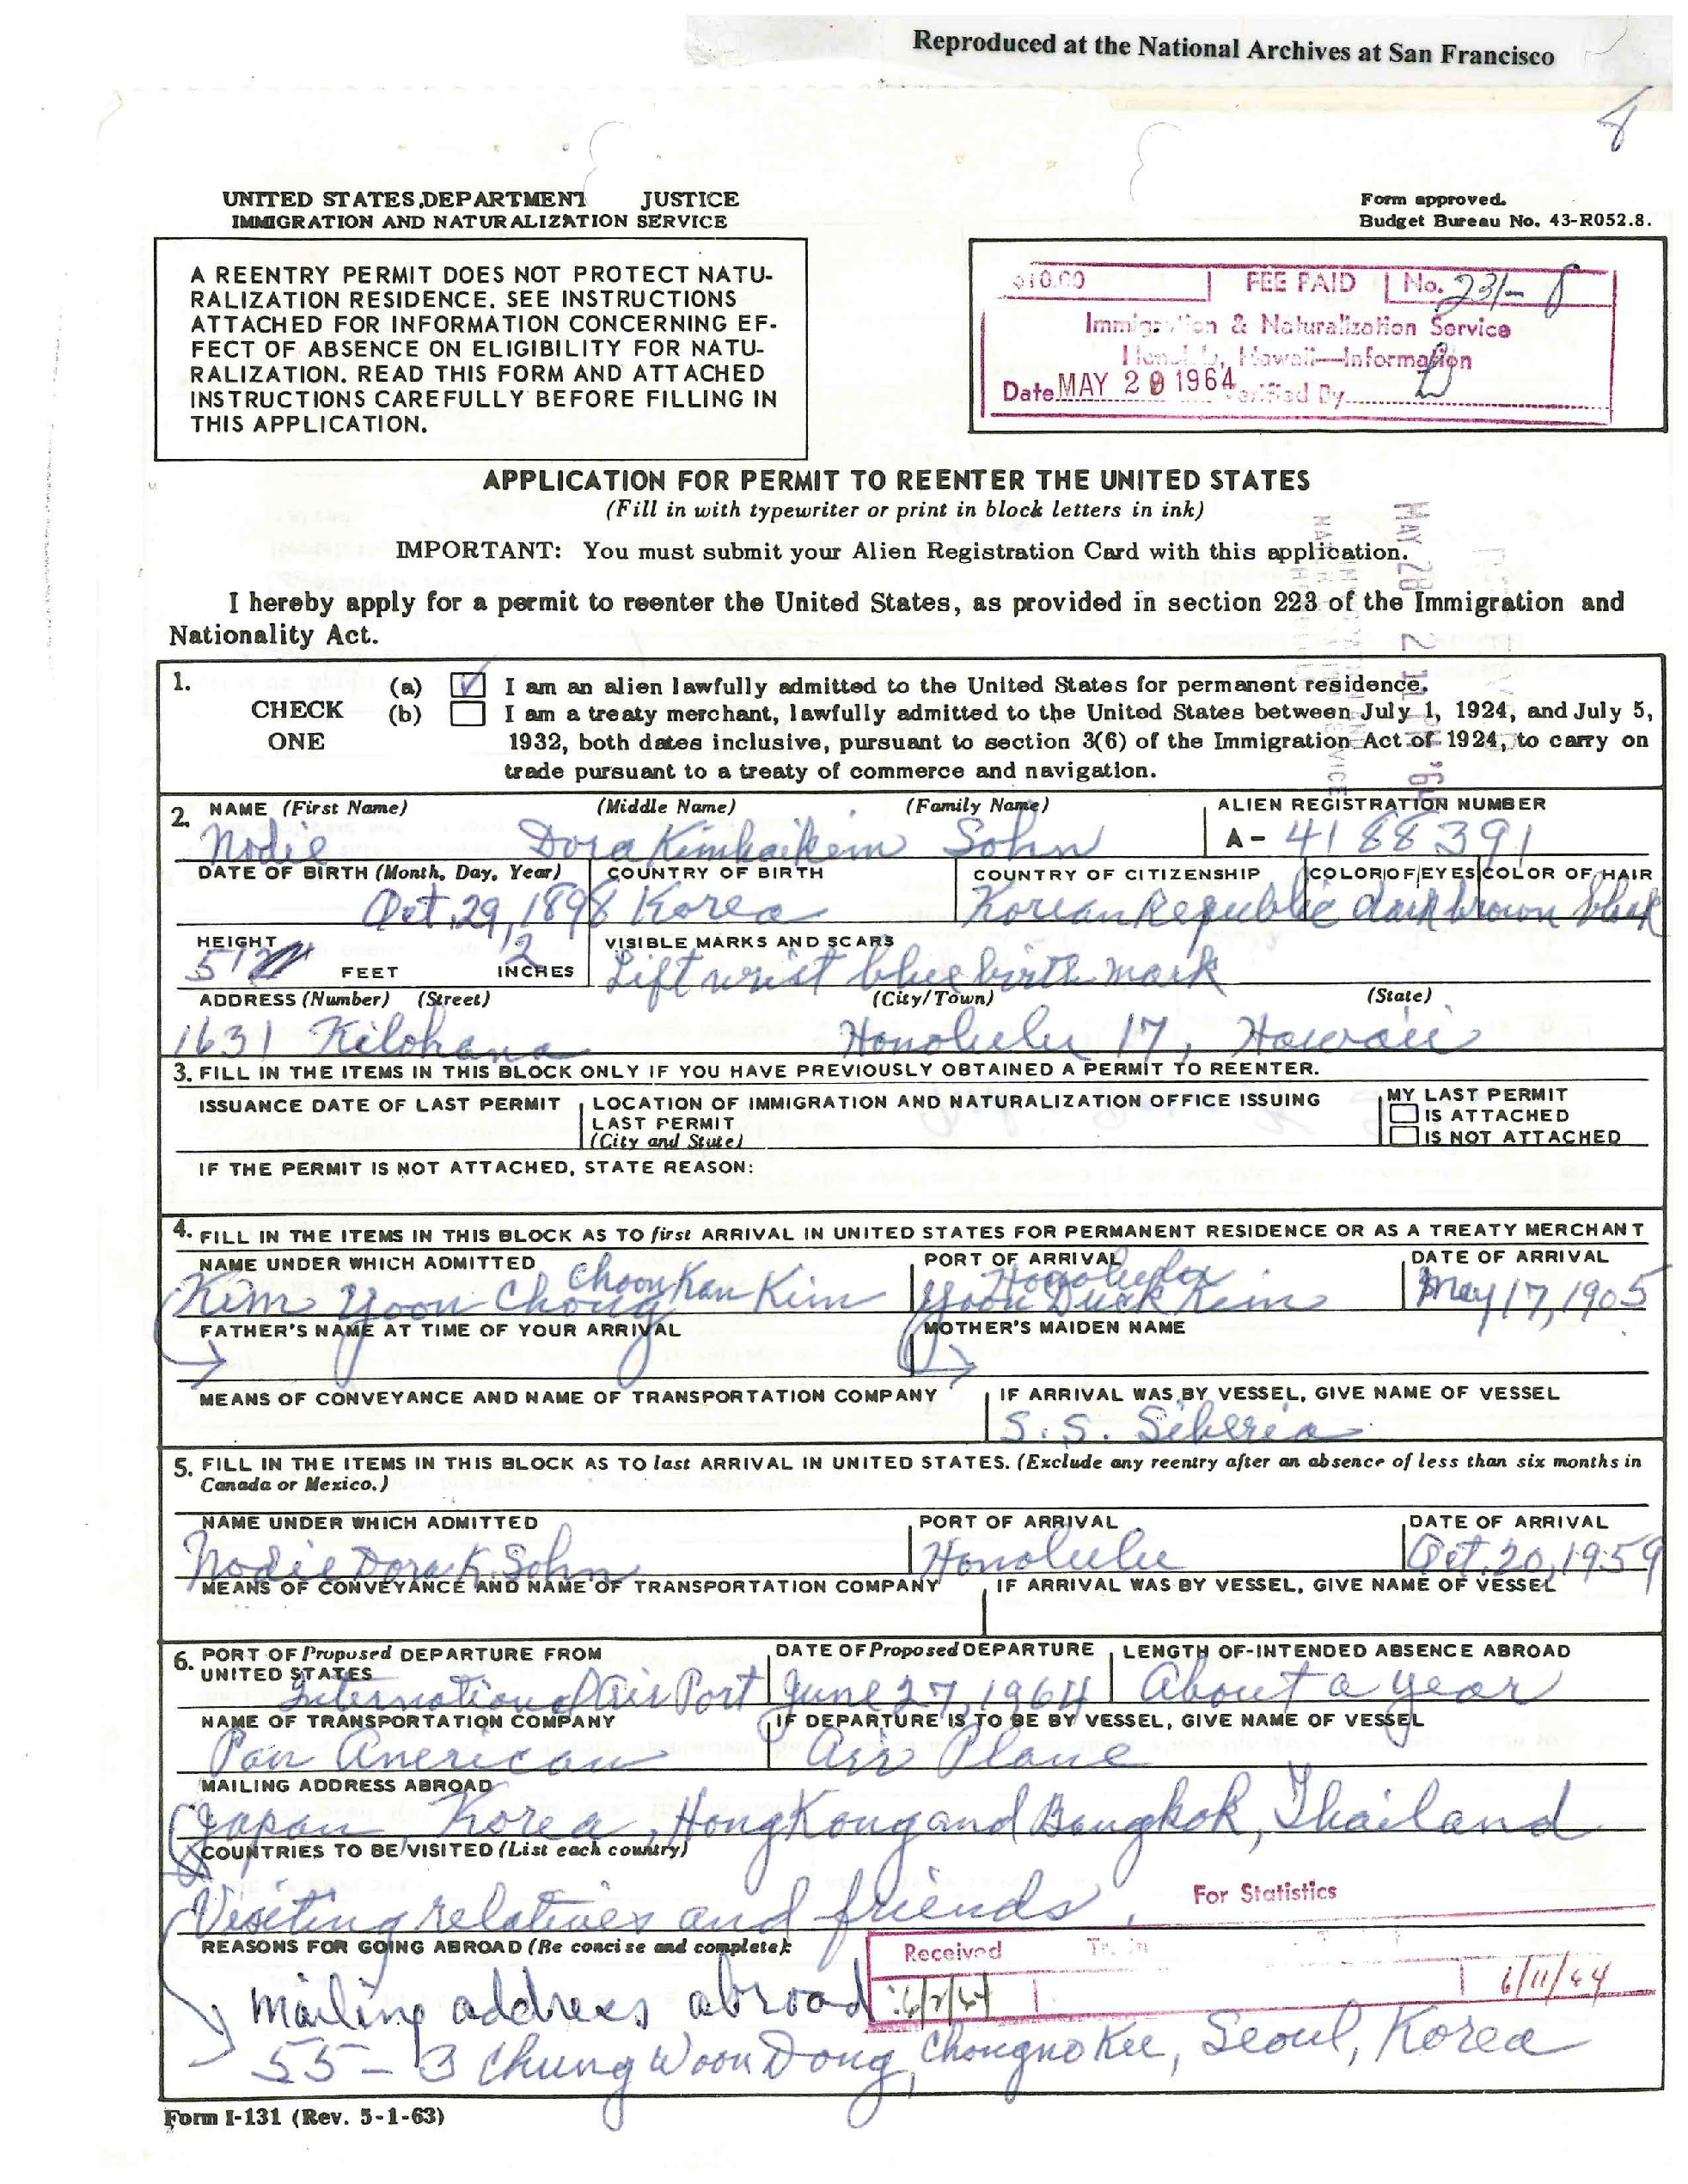 Reproduced at the National Archives at San Francisco
8
UNITED STATES DEPARTMENT JUSTICE
IMMIGRATION AND NATURALIZATION SERVICE
Form approved.
Budget Bureau No. 43-R052.8.
A REENTRY PERMIT DOES NOT PROTECT NATU-
RALIZATION RESIDENCE. SEE INSTRUCTIONS
ATTACHED FOR INFORMATION CONCERNING EF-
FECT OF ABSENCE ON ELIGIBILITY FOR NATU-
RALIZATION. READ THIS FORM AND ATTACHED
INSTRUCTIONS CAREFULLY BEFORE FILLING IN
THIS APPLICATION.
$10.00 FEE PAID No. 231-
Immigration & Naturalization Service
Honolulu, Hawaii—Information
Date MAY 20 1964 Verified By
APPLICATION FOR PERMIT TO REENTER THE UNITED STATES
(Fill in with typewriter or print in block letters in ink)
IMPORTANT: You must submit your Alien Registration Card with this application.
MAY 28 2 11 PM '64
I hereby apply for a permit to reenter the United States, as provided in section 223 of the Immigration and
Nationality Act.
1. CHECK ONE
(a) ✓ I am an alien lawfully admitted to the United States for permanent residence.
(b) I am a treaty merchant, lawfully admitted to the United States between July 1, 1924, and July 5,
1932, both dates inclusive, pursuant to section 3(6) of the Immigration Act of 1924, to carry on
trade pursuant to a treaty of commerce and navigation.
2. NAME (First Name) (Middle Name) (Family Name) ALIEN REGISTRATION NUMBER
Nodie Dora Kimhaikim Sohn A- 4188391
DATE OF BIRTH (Month, Day, Year) COUNTRY OF BIRTH COUNTRY OF CITIZENSHIP COLOR OF EYES COLOR OF HAIR
Oct. 29, 1898 Korea Korean Republic dark brown black
HEIGHT VISIBLE MARKS AND SCARS
5' FEET 2 INCHES Lift wrist blue birth mark
ADDRESS (Number) (Street) (City/Town) (State)
1631 Kilohana Honolulu 17, Hawaii
3. FILL IN THE ITEMS IN THIS BLOCK ONLY IF YOU HAVE PREVIOUSLY OBTAINED A PERMIT TO REENTER.
ISSUANCE DATE OF LAST PERMIT LOCATION OF IMMIGRATION AND NATURALIZATION OFFICE ISSUING MY LAST PERMIT
LAST PERMIT IS ATTACHED
(City and State) IS NOT ATTACHED
IF THE PERMIT IS NOT ATTACHED, STATE REASON:
4. FILL IN THE ITEMS IN THIS BLOCK AS TO first ARRIVAL IN UNITED STATES FOR PERMANENT RESIDENCE OR AS A TREATY MERCHANT
NAME UNDER WHICH ADMITTED PORT OF ARRIVAL DATE OF ARRIVAL
Choon Kan Honolulu
Kim Yoon Chong Kim Yoon Duck Kim May 17, 1905
FATHER'S NAME AT TIME OF YOUR ARRIVAL MOTHER'S MAIDEN NAME
MEANS OF CONVEYANCE AND NAME OF TRANSPORTATION COMPANY IF ARRIVAL WAS BY VESSEL, GIVE NAME OF VESSEL
S.S. Siberia
5. FILL IN THE ITEMS IN THIS BLOCK AS TO last ARRIVAL IN UNITED STATES. (Exclude any reentry after an absence of less than six months in
Canada or Mexico.)
NAME UNDER WHICH ADMITTED PORT OF ARRIVAL DATE OF ARRIVAL
Nodie Dora K. Sohn Honolulu Oct. 20, 1959
MEANS OF CONVEYANCE AND NAME OF TRANSPORTATION COMPANY IF ARRIVAL WAS BY VESSEL, GIVE NAME OF VESSEL
6. PORT OF Proposed DEPARTURE FROM DATE OF Proposed DEPARTURE LENGTH OF INTENDED ABSENCE ABROAD
UNITED STATES
International Air Port June 27, 1964 About a year
NAME OF TRANSPORTATION COMPANY IF DEPARTURE IS TO BE BY VESSEL, GIVE NAME OF VESSEL
Pan American Air Plane
MAILING ADDRESS ABROAD
Japan Korea, Hong Kong and Bangkok, Thailand
COUNTRIES TO BE VISITED (List each country)
Visiting relatives and friends.
For Statistics
REASONS FOR GOING ABROAD (Be concise and complete):
Received
6/2/64 6/11/64
Mailing address abroad:
55-3 Chung Woon Dong, Chongno Kee, Seoul, Korea
Form I-131 (Rev. 5-1-63)